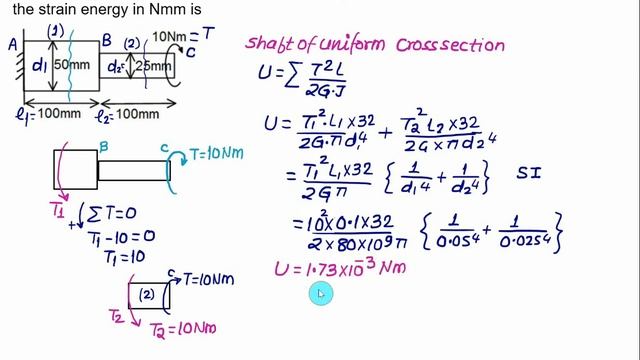 the strain energy in Nmm is
(1)
A
B
(2)
10Nm = T
C
d1 50mm
d2= 25mm
l1=100mm l2=100mm
B
C
T=10Nm
T1
+ ΣT=0
T1-10=0
T1=10
C
T=10Nm
(2)
T2
T2=10Nm
Shaft of uniform Crosssection
U = Σ T²L / 2G·J
U = T1²·L1×32 / 2G·πd1⁴ + T2² L2×32 / 2G×πd2⁴
= T1² L1×32 / 2Gπ { 1/d1⁴ + 1/d2⁴ } SI
= 10²×0.1×32 / 2×80×10⁹π { 1/0.05⁴ + 1/0.025⁴ }
U = 1.73×10⁻³ Nm